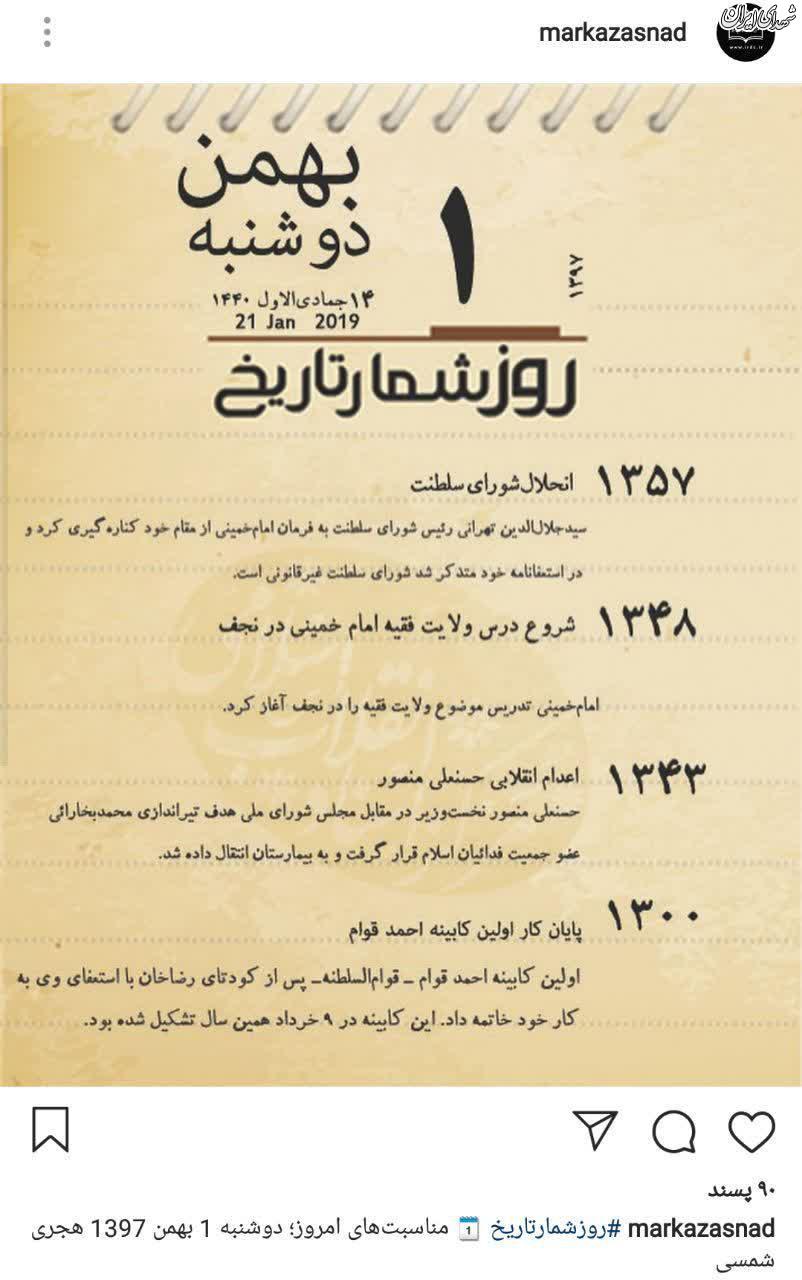 markazasnad
شهدای ایران
www.irdc.ir
بهمن
۱
دوشنبه
۱۳۹۷
۱۴ جمادی‌الاول ۱۴۴۰
21 Jan 2019
روزشمارتاریخ
۱۳۵۷ انحلال شورای سلطنت
سیدجلال‌الدین تهرانی رئیس شورای سلطنت به فرمان امام‌خمینی از مقام خود کناره‌گیری کرد و
در استعفانامه خود متذکر شد شورای سلطنت غیرقانونی است.
۱۳۴۸ شروع درس ولایت فقیه امام خمینی در نجف
امام‌خمینی تدریس موضوع ولایت فقیه را در نجف آغاز کرد.
۱۳۴۳ اعدام انقلابی حسنعلی منصور
حسنعلی منصور نخست‌وزیر در مقابل مجلس شورای ملی هدف تیراندازی محمدبخارائی
عضو جمعیت فدائیان اسلام قرار گرفت و به بیمارستان انتقال داده شد.
۱۳۰۰ پایان کار اولین کابینه احمد قوام
اولین کابینه احمد قوام ـ قوام‌السلطنه‌ـ پس از کودتای رضاخان با استعفای وی به
کار خود خاتمه داد. این کابینه در ۹ خرداد همین سال تشکیل شده بود.
۹۰ پسند
markazasnad #روزشمارتاریخ 1 مناسبت‌های امروز؛ دوشنبه 1 بهمن 1397 هجری
شمسی